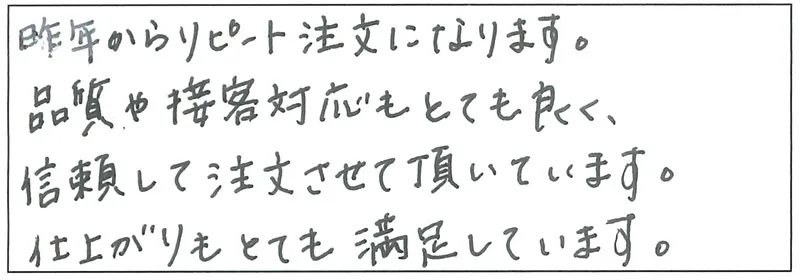 昨年からリピート注文になります。
品質や接客対応もとても良く、
信頼して注文させて頂いています。
仕上がりもとても満足しています。